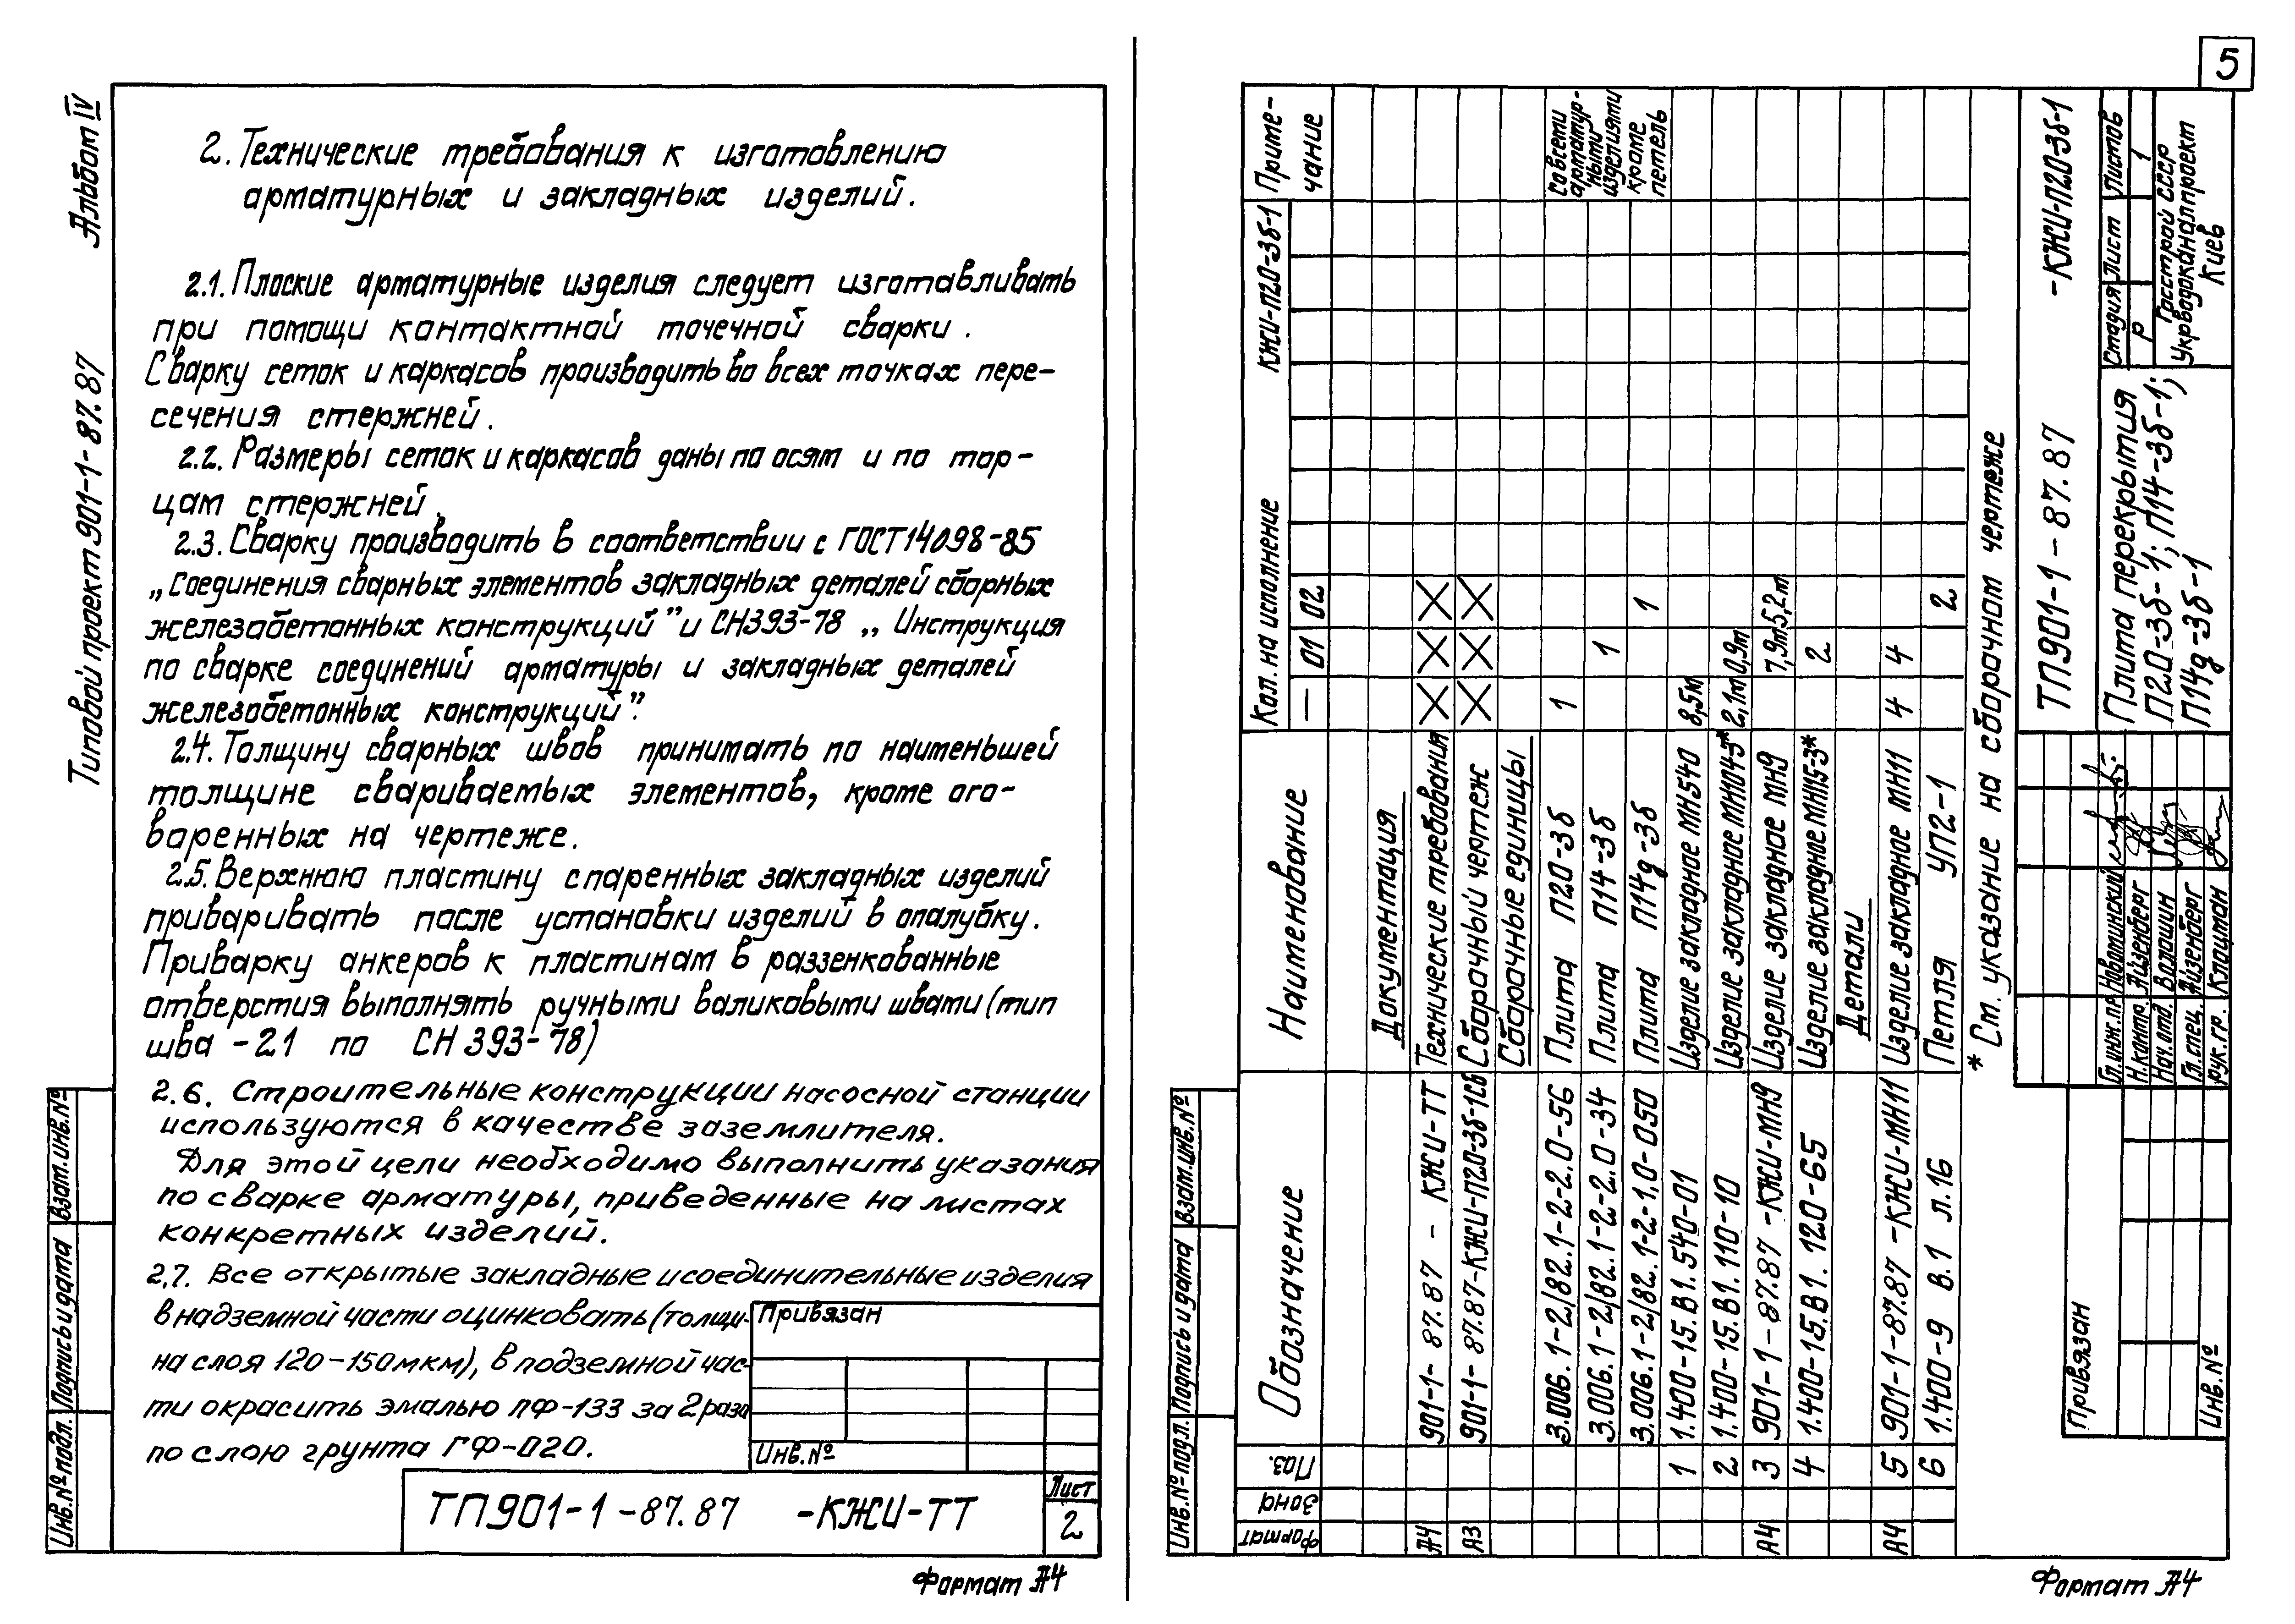 5
Альбом IV
Типовой проект 901-1-87.87
2. Технические требования к изготовлению
арматурных и закладных изделий.
2.1. Плоские арматурные изделия следует изготавливать
при помощи контактной точечной сварки.
Сварку сеток и каркасов производить во всех точках пере-
сечения стержней.
2.2. Размеры сеток и каркасов даны по осям и по тор-
цам стержней.
2.3. Сварку производить в соответствии с ГОСТ 14098-85
„Соединения сварных элементов закладных деталей сборных
железобетонных конструкций” и СН393-78 „Инструкция
по сварке соединений арматуры и закладных деталей
железобетонных конструкций”.
2.4. Толщину сварных швов принимать по наименьшей
толщине свариваемых элементов, кроме ого-
воренных на чертеже.
2.5. Верхнюю пластину спаренных закладных изделий
приваривать после установки изделий в опалубку.
Приварку анкеров к пластинам в раззенкованные
отверстия выполнять ручными валиковыми швами (тип
шва -21 по СН 393-78)
2.6. Строительные конструкции насосной станции
используются в качестве заземлителя.
Для этой цели необходимо выполнить указания
по сварке арматуры, приведенные на листах
конкретных изделий.
2.7. Все открытые закладные и соединительные изделия
в надземной части оцинковать (толщи-
на слоя 120-150мкм), в подземной час-
ти окрасить эмалью ПФ-133 за 2 раза
по слою грунта ГФ-020.
Привязан
Инв.№
ТП901-1-87.87 -КЖИ-ТТ
Лист
2
Инв.№ подл. Подпись и дата Взам.инв.№
Формат А4
Формат Зона Поз. Обозначение Наименование Кол. на исполнение КЖИ-П20-3б-1 Приме-
чание
— 01 02
Документация
А4 901-1-87.87 - КЖИ-ТТ Технические требования X X X
А3 901-1-87.87-КЖИ-П20-3б-1СБ Сборочный чертеж X X X
Сборочные единицы
3.006.1-2/82.1-2-2.0-56 Плита П20-3б 1 Со всеми
арматур-
3.006.1-2/82.1-2-2.0-34 Плита П14-3б 1 ными
изделиями
3.006.1-2/82.1-2-1.0-050 Плита П14д-3б 1 кроме
петель
1 1.400-15.В1.540-01 Изделие закладное МН540 8,5м
2 1.400-15.В1.110-10 Изделие закладное МН104-3* 2,1м 0,9м
А4 3 901-1-87.87 -КЖИ-МН9 Изделие закладное МН9 7,9м 5,2м
4 1.400-15.В1.120-65 Изделие закладное МН115-3* 2
Детали
А4 5 901-1-87.87 -КЖИ-МН11 Изделие закладное МН11 4 4
6 1.400-9 В.1 л.16 Петля УП2-1 2
* См. указание на сборочном чертеже
ТП901-1-87.87 -КЖИ-П20-3б-1
Гл.инж.пр. Новотинский
Н.контр. Айзенберг
Нач.отд. Волошин
Гл.спец. Айзенберг
рук.гр. Клоцман
Плита перекрытия
П20-3б-1; П14-3б-1;
П14д-3б-1
Стадия Лист Листов
Р 1
Госстрой СССР
Укрводоканалпроект
Киев
Привязан
Инв.№
Инв.№ подл. Подпись и дата Взам.инв.№
Формат А4